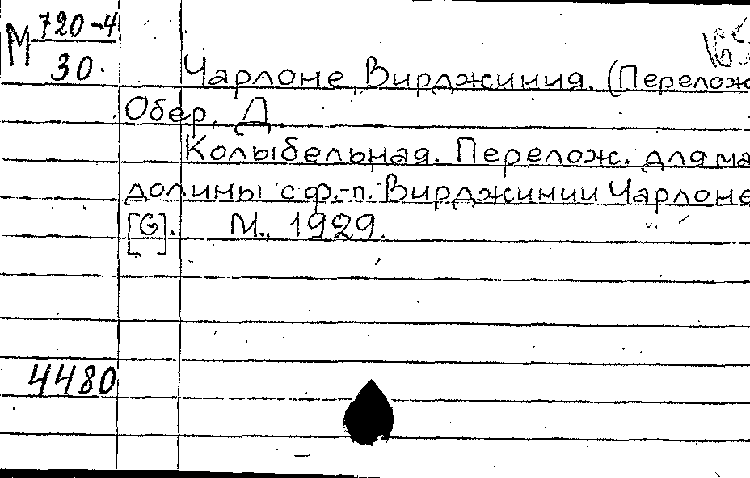 М 720-4
30.
Чарлоне, Вирджиния. (Перелож
Обер, Д
Колыбельная. Перелож. для ма
долины с ф.-п. Вирджинии Чарлоне
[G]. М., 1929.
4480